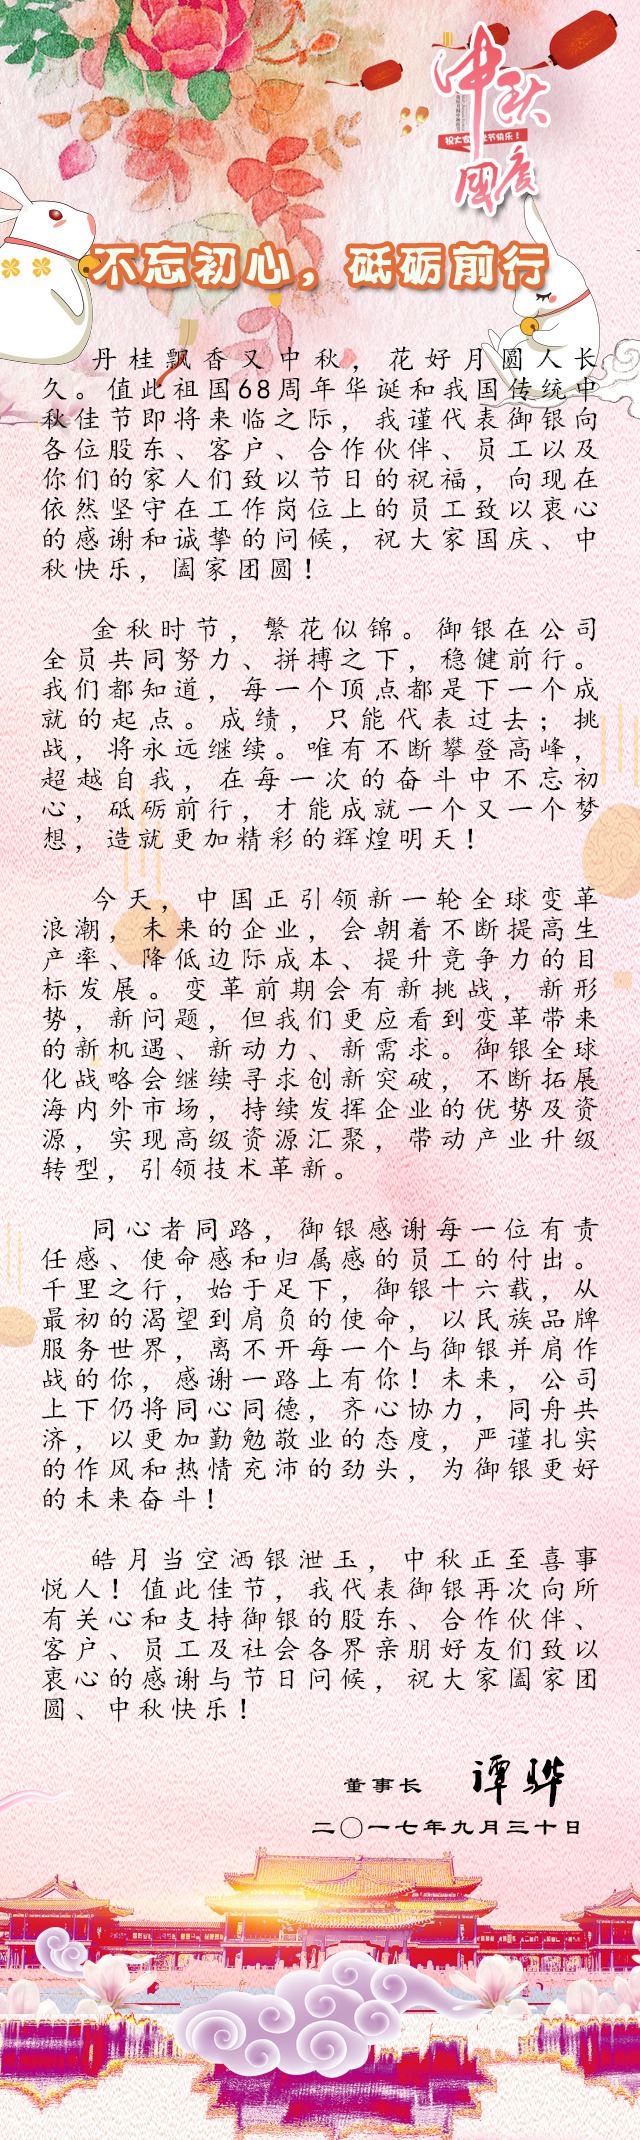 中秋
祝大家 节快乐！
國慶
不忘初心，砥砺前行
丹桂飘香又中秋，花好月圆人长
久。值此祖国68周年华诞和我国传统中
秋佳节即将来临之际，我谨代表御银向
各位股东、客户、合作伙伴、员工以及
你们的家人们致以节日的祝福，向现在
依然坚守在工作岗位上的员工致以衷心
的感谢和诚挚的问候，祝大家国庆、中
秋快乐，阖家团圆！
金秋时节，繁花似锦。御银在公司
全员共同努力、拼搏之下，稳健前行。
我们都知道，每一个顶点都是下一个成
就的起点。成绩，只能代表过去；挑
战，将永远继续。唯有不断攀登高峰，
超越自我，在每一次的奋斗中不忘初
心，砥砺前行，才能成就一个又一个梦
想，造就更加精彩的辉煌明天！
今天，中国正引领新一轮全球变革
浪潮，未来的企业，会朝着不断提高生
产率、降低边际成本、提升竞争力的目
标发展。变革前期会有新挑战，新形
势，新问题，但我们更应看到变革带来
的新机遇、新动力、新需求。御银全球
化战略会继续寻求创新突破，不断拓展
海内外市场，持续发挥企业的优势及资
源，实现高级资源汇聚，带动产业升级
转型，引领技术革新。
同心者同路，御银感谢每一位有责
任感、使命感和归属感的员工的付出。
千里之行，始于足下，御银十六载，从
最初的渴望到肩负的使命，以民族品牌
服务世界，离不开每一个与御银并肩作
战的你，感谢一路上有你！未来，公司
上下仍将同心同德，齐心协力，同舟共
济，以更加勤勉敬业的态度，严谨扎实
的作风和热情充沛的劲头，为御银更好
的未来奋斗！
皓月当空洒银泄玉，中秋正至喜事
悦人！值此佳节，我代表御银再次向所
有关心和支持御银的股东、合作伙伴、
客户、员工及社会各界亲朋好友们致以
衷心的感谢与节日问候，祝大家阖家团
圆、中秋快乐！
董事长 谭骅
二〇一七年九月三十日